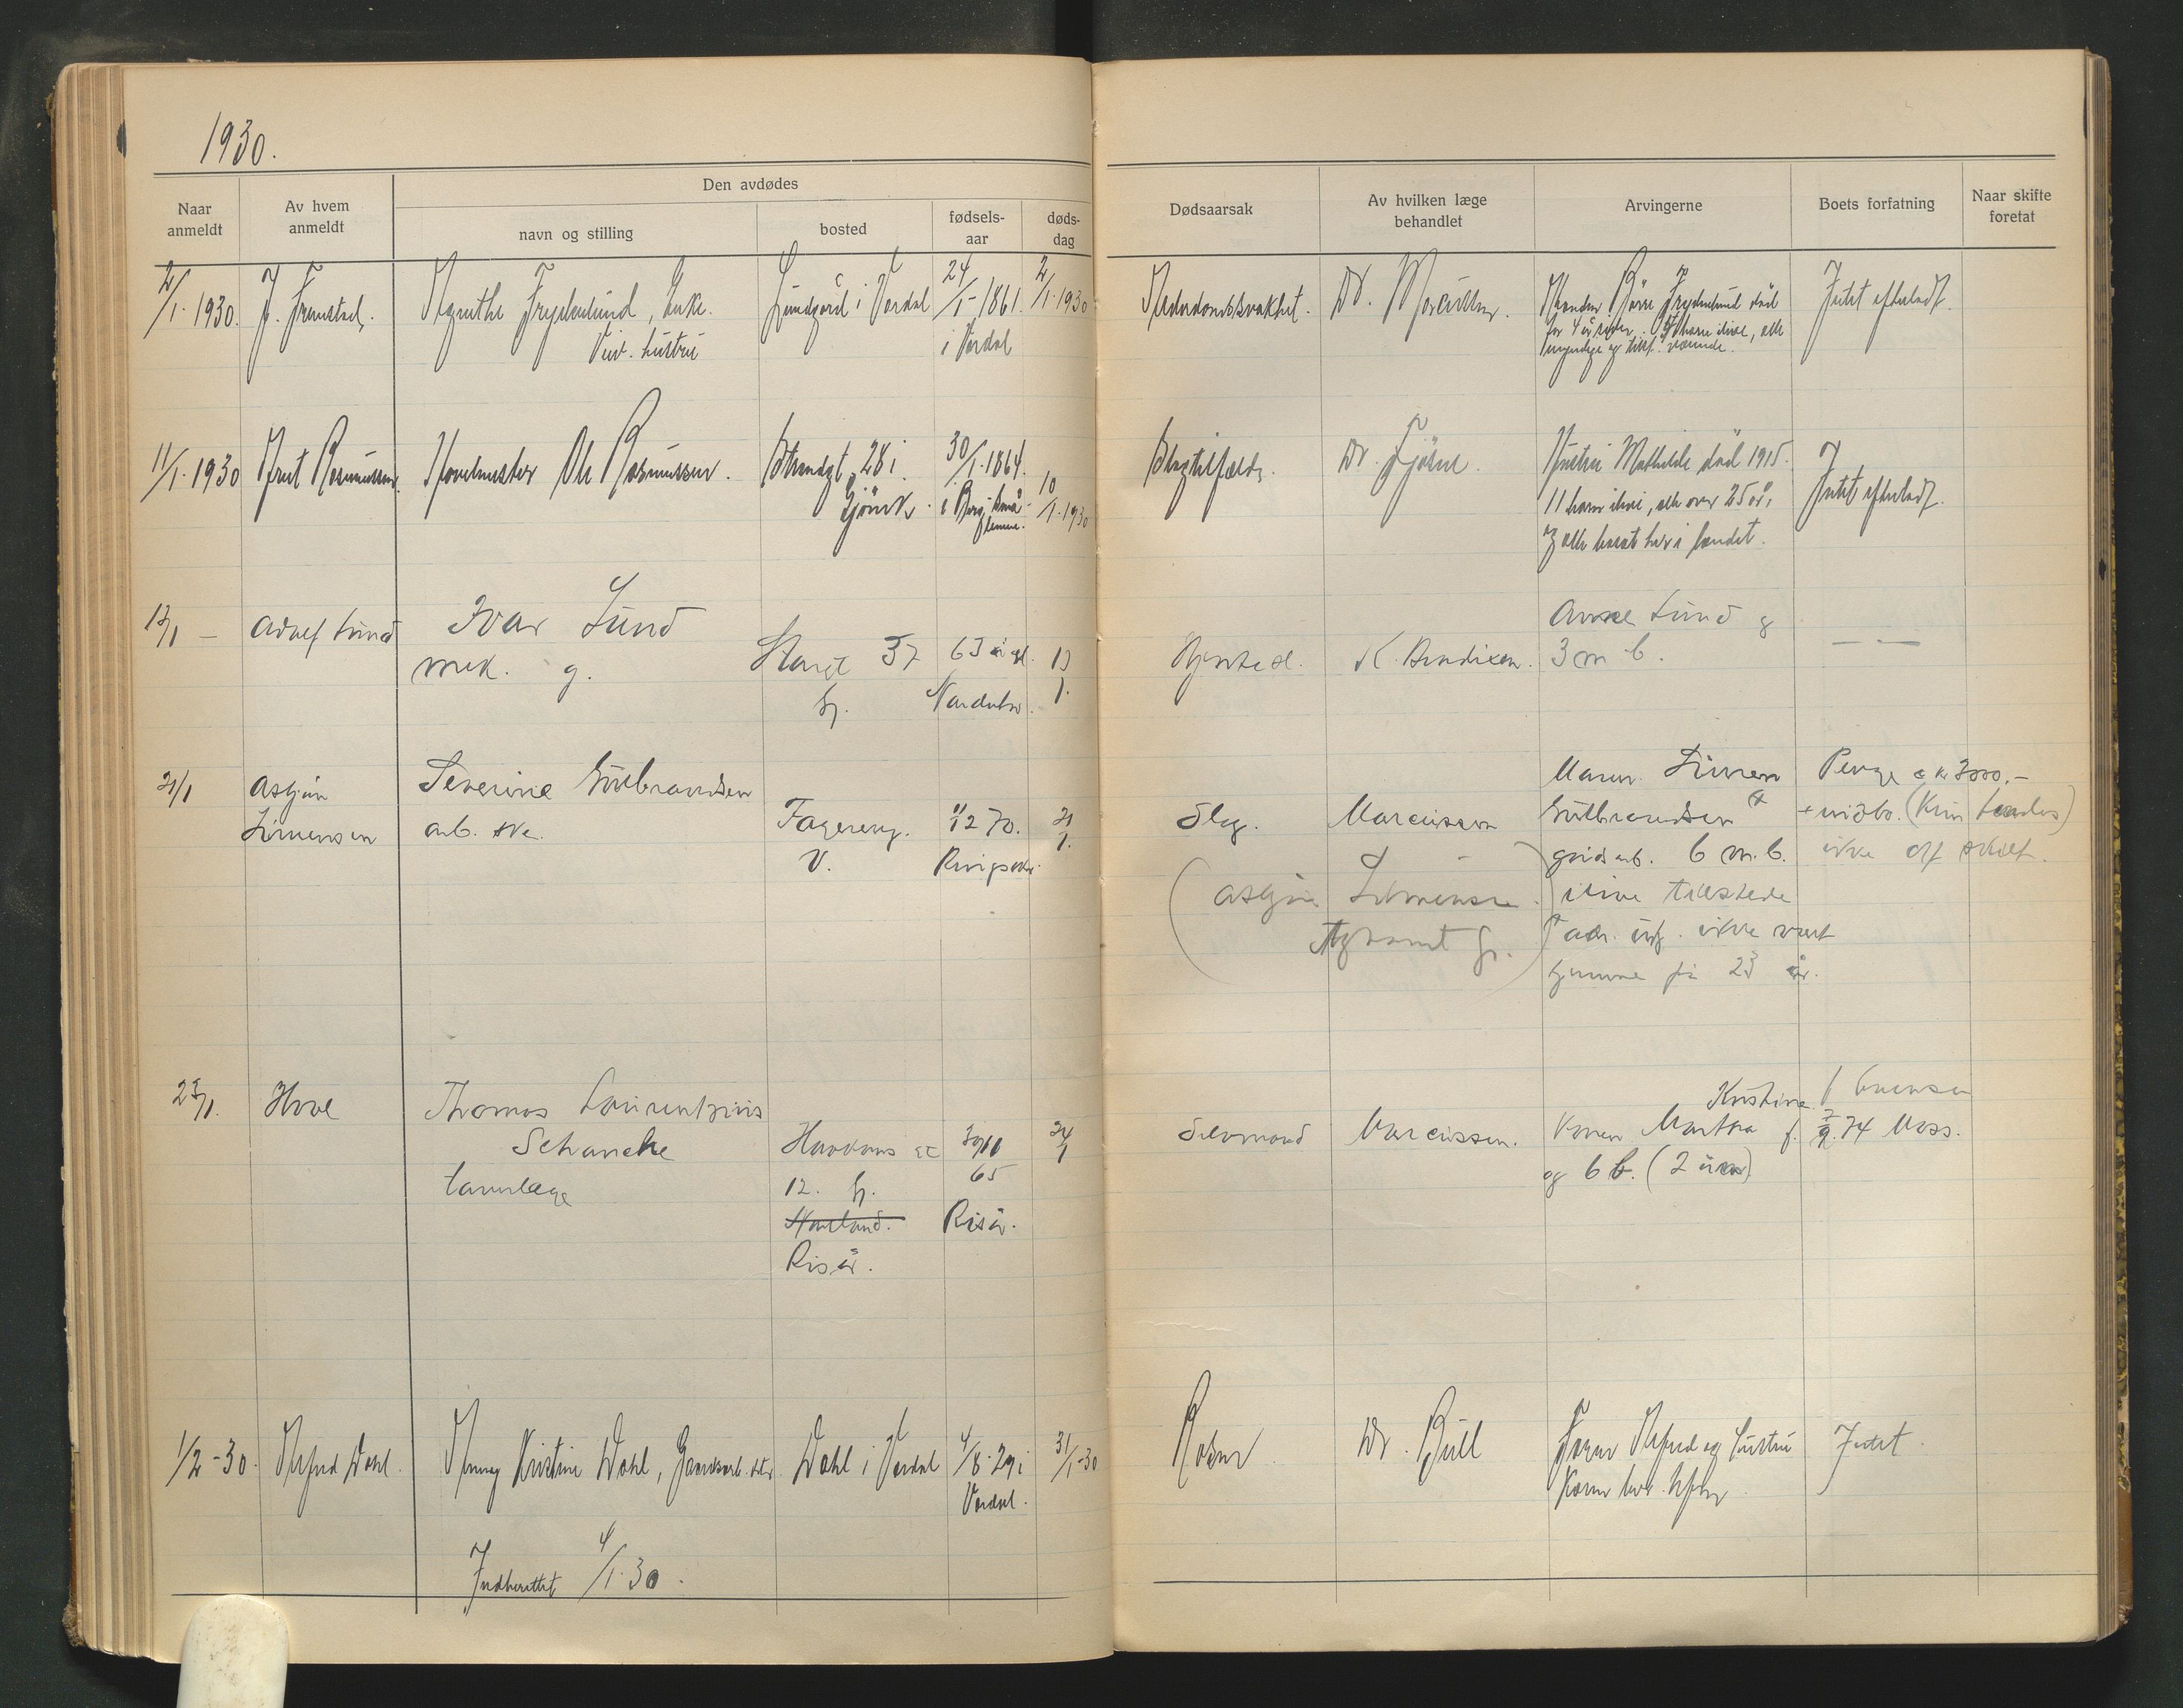 1930.
Naar anmeldt
Av hvem anmeldt
Den avdødes
navn og stilling
bosted
fødsels-aar
døds-dag
Dødsaarsak
Av hvilken læge behandlet
Arvingerne
Boets forfatning
Naar skifte foretat
2/1. 1930.
J. Framstad.
Agnethe Frydenlund, Enke.
Lundgård i Vardal
24/1-1861.
i Vardal
2/1. 1930
Alderdomssvakhet.
Dr. Marcussen.
Manden Børre Frydenlund död
for 4 år siden. barn ilive, alle
myndige og
Intet efterladt.
11/1. 1930
Rasmussen.
Ole Rasmussen.
Strandgt. 28 i
Gjövik.
30/1. 1864.
10/1. 1930
Slagtilfælde.
Dr. Fjösne.
Hustru Mathilde död 1915.
11 barn ilive, alle over 25 år,
og alle bosat her i landet.
Intet efterladt.
13/1 —
Adolf Lund
Ivar Lund
mek. g.
Storgt 37
g.
63 år gl.
13/1.
Hjertesl.
K. Bendixen.
Anne Lund og
3 m b.
— —
21/1
Asbjörn
Simensen
Severine Gulbrandsen
arb. ske.
Fagereng.
V.
11/12 70.
Ringsaker.
21/1.
Slag.
Marcussen
Mann. Simen
Gulbrandsen
gårdsarb. 6 m. b.
ilive tilstede
adr. ikke vært
hjemme på 23 år.
(Asbjörn Simensen.
Penge c kr 3000,-
+ indbo.
ikke off skift.
25/1.
Hove
Thomas Laurentzius
Schancke
tannlæge
Haakons gt
12. g.
Risör.
30/11
65
Risör.
24/1
Marcussen.
Konen Martha Kristine
f. 7/9. 74 Moss.
og 6 b. (2 um)
1/2-30.
Alfred Dahl.
Anny Kristine Dahl, Gaardsarb. dtr.
Dahl i Vardal
4/8-29 i
Vardal.
31/1-30
Dr. Bull
Faren Alfred og hustru
Intet.
Indberettet 4/1. 30.